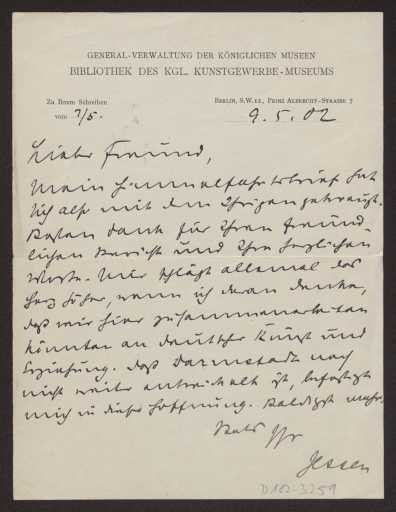 GENERAL-VERWALTUNG DER KÖNIGLICHEN MUSEEN
BIBLIOTHEK DES KGL. KUNSTGEWERBE-MUSEUMS
Zu Ihrem Schreiben
vom 7/5.
BERLIN, S.W. 12, PRINZ ALBRECHT-STRASSE 7
9.5.02
Lieber Freund,
Mein Himmelfahrtsbrief hat
sich also mit dem Ihrigen gekreuzt.
Besten Dank für Ihren freund-
lichen Bericht und Ihre herzlichen
Worte. Mir schlägt allemal das
Herz höher, wenn ich daran denke,
daß wir hier zusammenarbeiten
könnten an deutscher Kunst und
Erziehung. Daß Darmstadt noch
nicht weiter entwickelt ist, befestigt
mich in dieser Hoffnung. Baldigst mehr.
Stets Ihr
Jessen
D102-3259